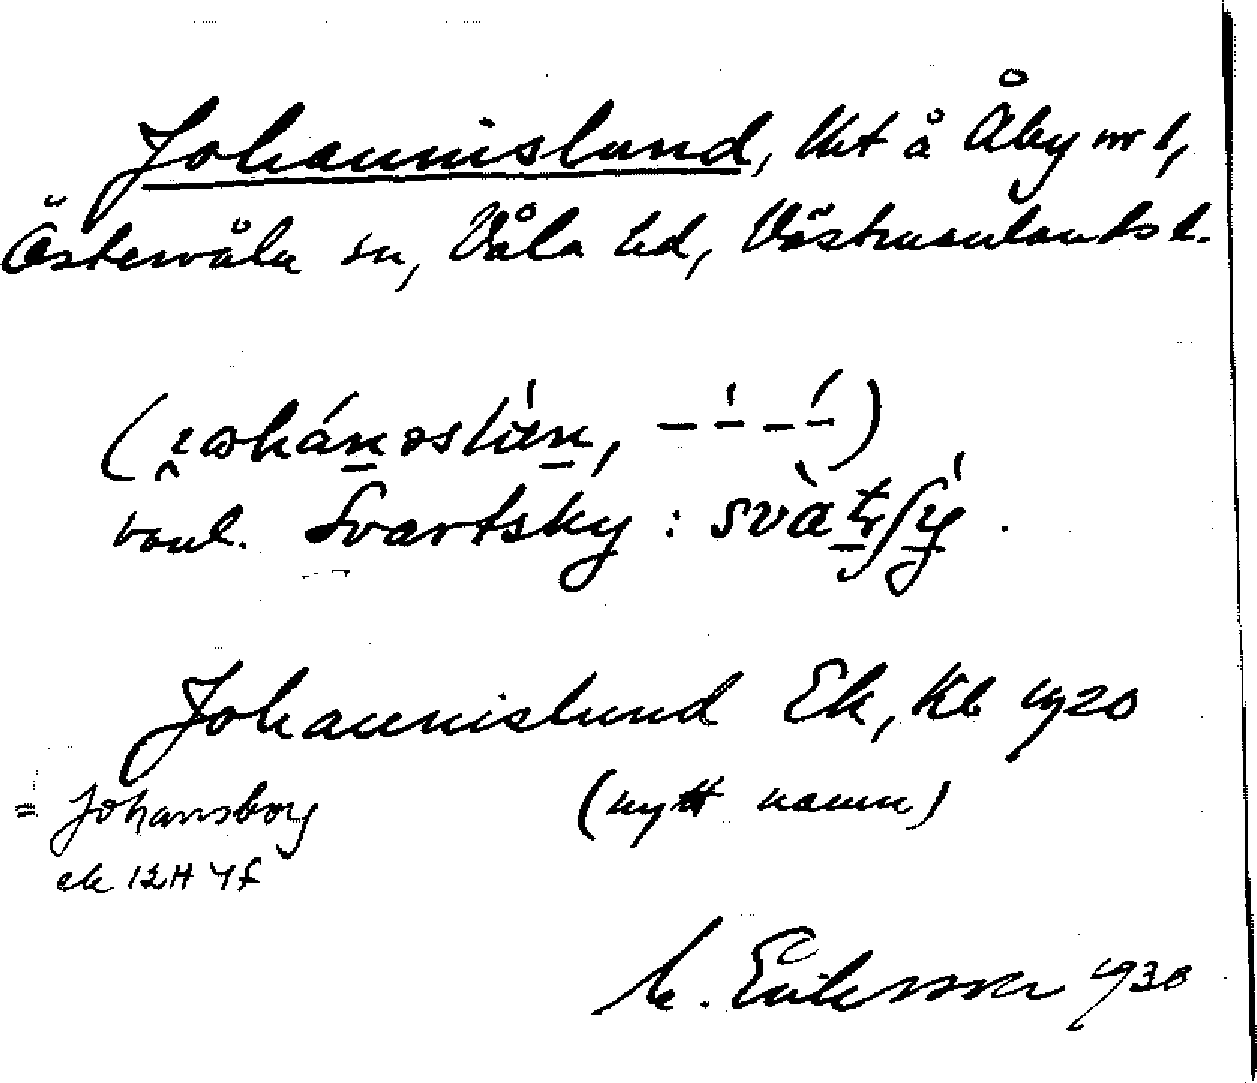 Johannislund, lht å Åby nr 1,
Östervåla sn, Våla hd, Västmanlands l.
vanl. Svartsky :
Johannislund Ek, Kb 1920
= Johansborg (nytt namn)
ek 12H 4f
M. Eriksson 1930